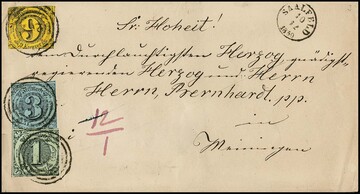 9
SAALFELD
Sr. Hoheit!
dem Durchlauchtigsten Herzog, gnädigst
regierenden Herzog und Herrn
Herrn, Bernhard, pp.
3
12
1
in
1
Meiningen